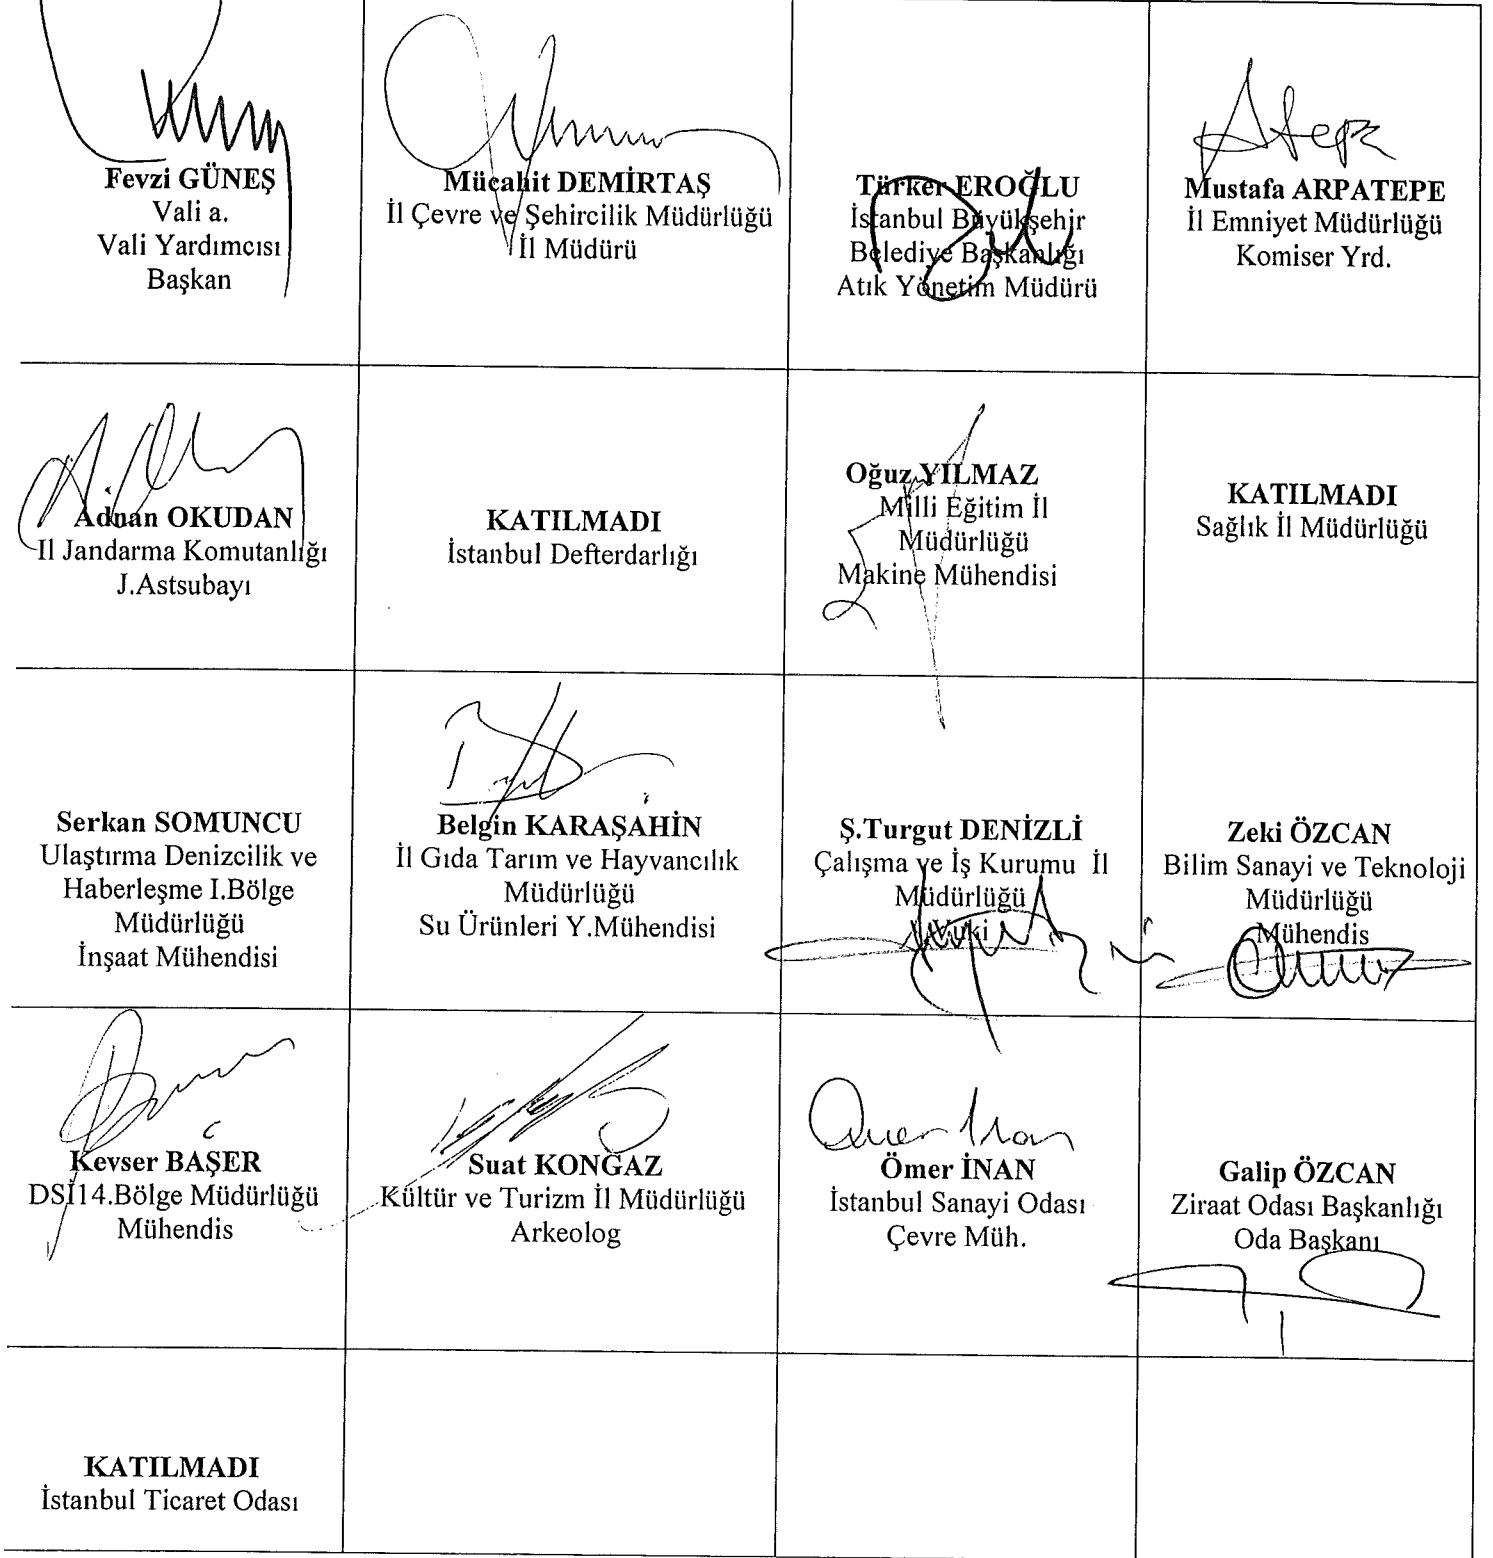 Fevzi GÜNEŞ
Vali a.
Vali Yardımcısı
Başkan
Mücahit DEMİRTAŞ
İl Çevre ve Şehircilik Müdürlüğü
İl Müdürü
Türker EROĞLU
İstanbul Büyükşehir
Belediye Başkanlığı
Atık Yönetim Müdürü
Atepe
Mustafa ARPATEPE
İl Emniyet Müdürlüğü
Komiser Yrd.
Adnan OKUDAN
Il Jandarma Komutanlığı
J.Astsubayı
KATILMADI
İstanbul Defterdarlığı
Oğuz YILMAZ
Milli Eğitim İl
Müdürlüğü
Makine Mühendisi
KATILMADI
Sağlık İl Müdürlüğü
Serkan SOMUNCU
Ulaştırma Denizcilik ve
Haberleşme I.Bölge
Müdürlüğü
İnşaat Mühendisi
Belgin KARAŞAHİN
İl Gıda Tarım ve Hayvancılık
Müdürlüğü
Su Ürünleri Y.Mühendisi
Ş.Turgut DENİZLİ
Çalışma ve İş Kurumu İl
Müdürlüğü
Zeki ÖZCAN
Bilim Sanayi ve Teknoloji
Müdürlüğü
Mühendis
Kevser BAŞER
DSİ14.Bölge Müdürlüğü
Mühendis
Suat KONGAZ
Kültür ve Turizm İl Müdürlüğü
Arkeolog
Ömer İnan
Ömer İNAN
İstanbul Sanayi Odası
Çevre Müh.
Galip ÖZCAN
Ziraat Odası Başkanlığı
Oda Başkanı
KATILMADI
İstanbul Ticaret Odası